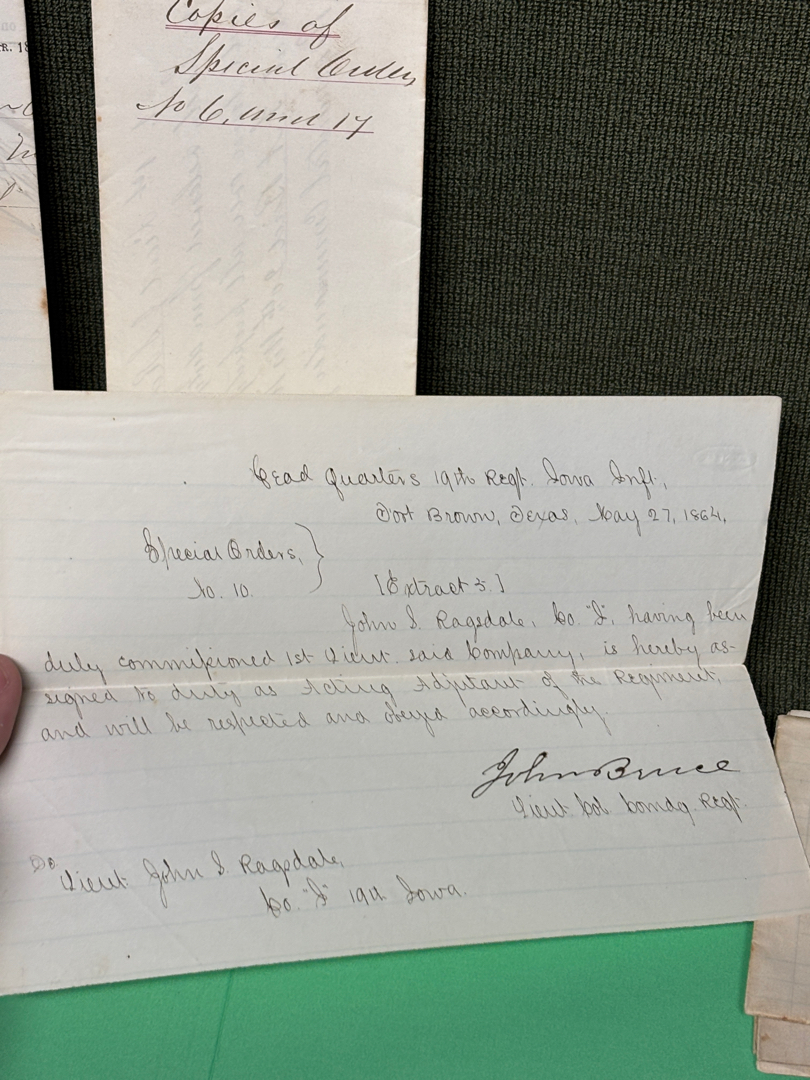 Copies of
Special Orders
No 6, and 17
R. 18
Head Quarters 19th Regt. Iowa Inft,
Fort Brown, Texas, May 27, 1864,
Special Orders,
No. 10.
[Extract 3.]
John S. Ragsdale, Co. "I", having been
duly commissioned 1st Lieut. said Company, is hereby as-
signed to duty as Acting Adjutant of the Regiment,
and will be respected and obeyed accordingly.
John Bruce
Lieut. Col Comdg. Regt.
To
Lieut. John S. Ragsdale,
Co. "I" 19th Iowa.